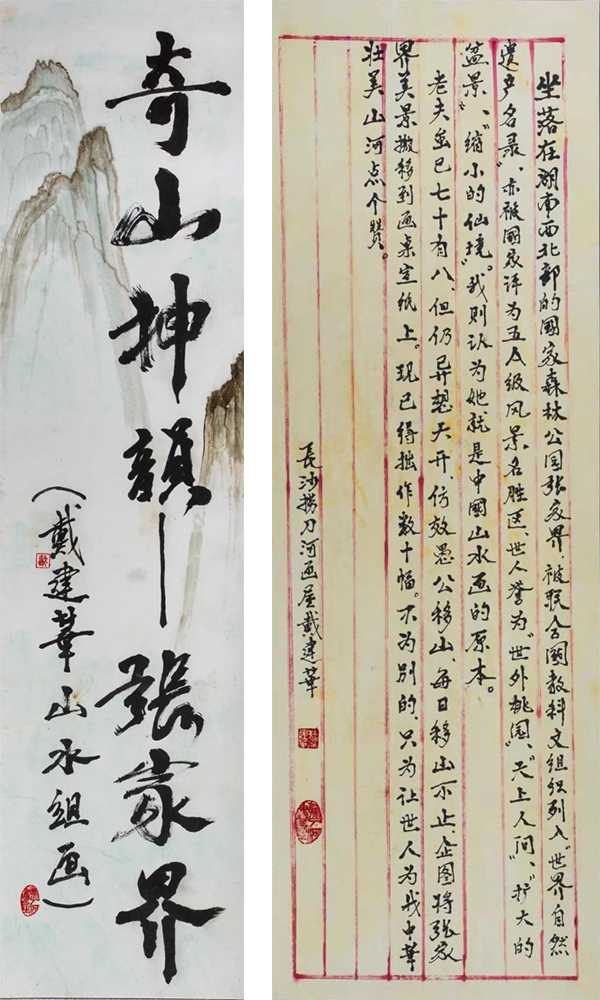 奇山神韻—張家界
(戴建華山水组画)
坐落在湖南西北部的國家森林公园张家界,被联合國教科文组织列入"世界自然
遗产名录",亦被國家评为五A级风景名胜区,世人誉为"世外桃园"、"天上人间"、"扩大的
盆景"、"缩小的仙境"。我则认为她就是中國山水画的原本。
老夫虽已七十有八,但仍异想天开,仿效愚公移山,每日移山不止,企图将张家
界美景搬移到画桌宣纸上。现已得拙作数十幅。不为别的,只为让世人为我中華
壮美山河点个赞。
長沙捞刀河画屋戴建華